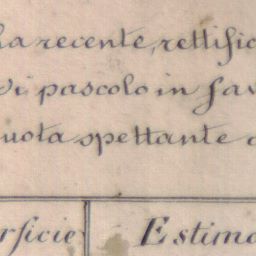 la recente, rettific
di pascolo in fav
uota spettante
rficie Estima